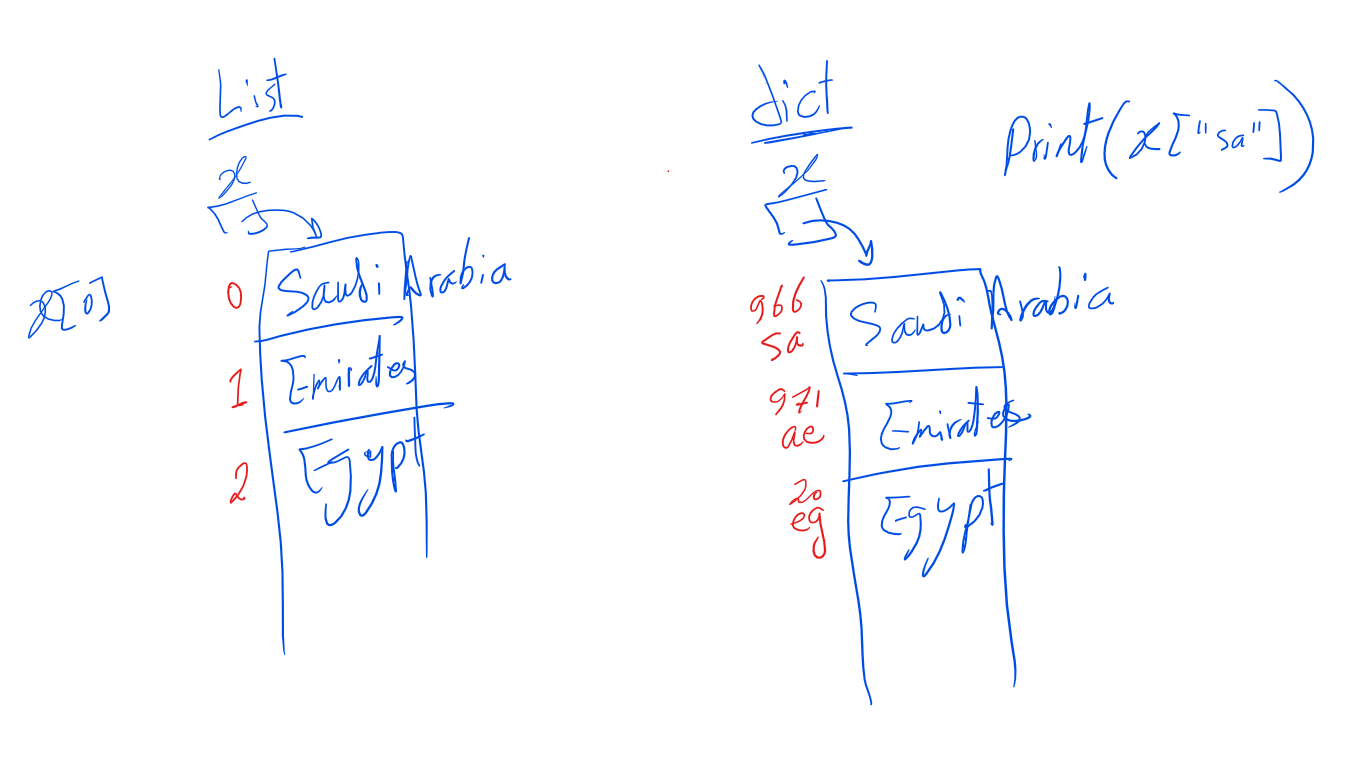 List
x
x[0]
0 Saudi Arabia
1 Emirates
2 Egypt
dict
x
Print(x["sa"])
966
sa
Saudi Arabia
971
ae
Emirates
20
eg
Egypt